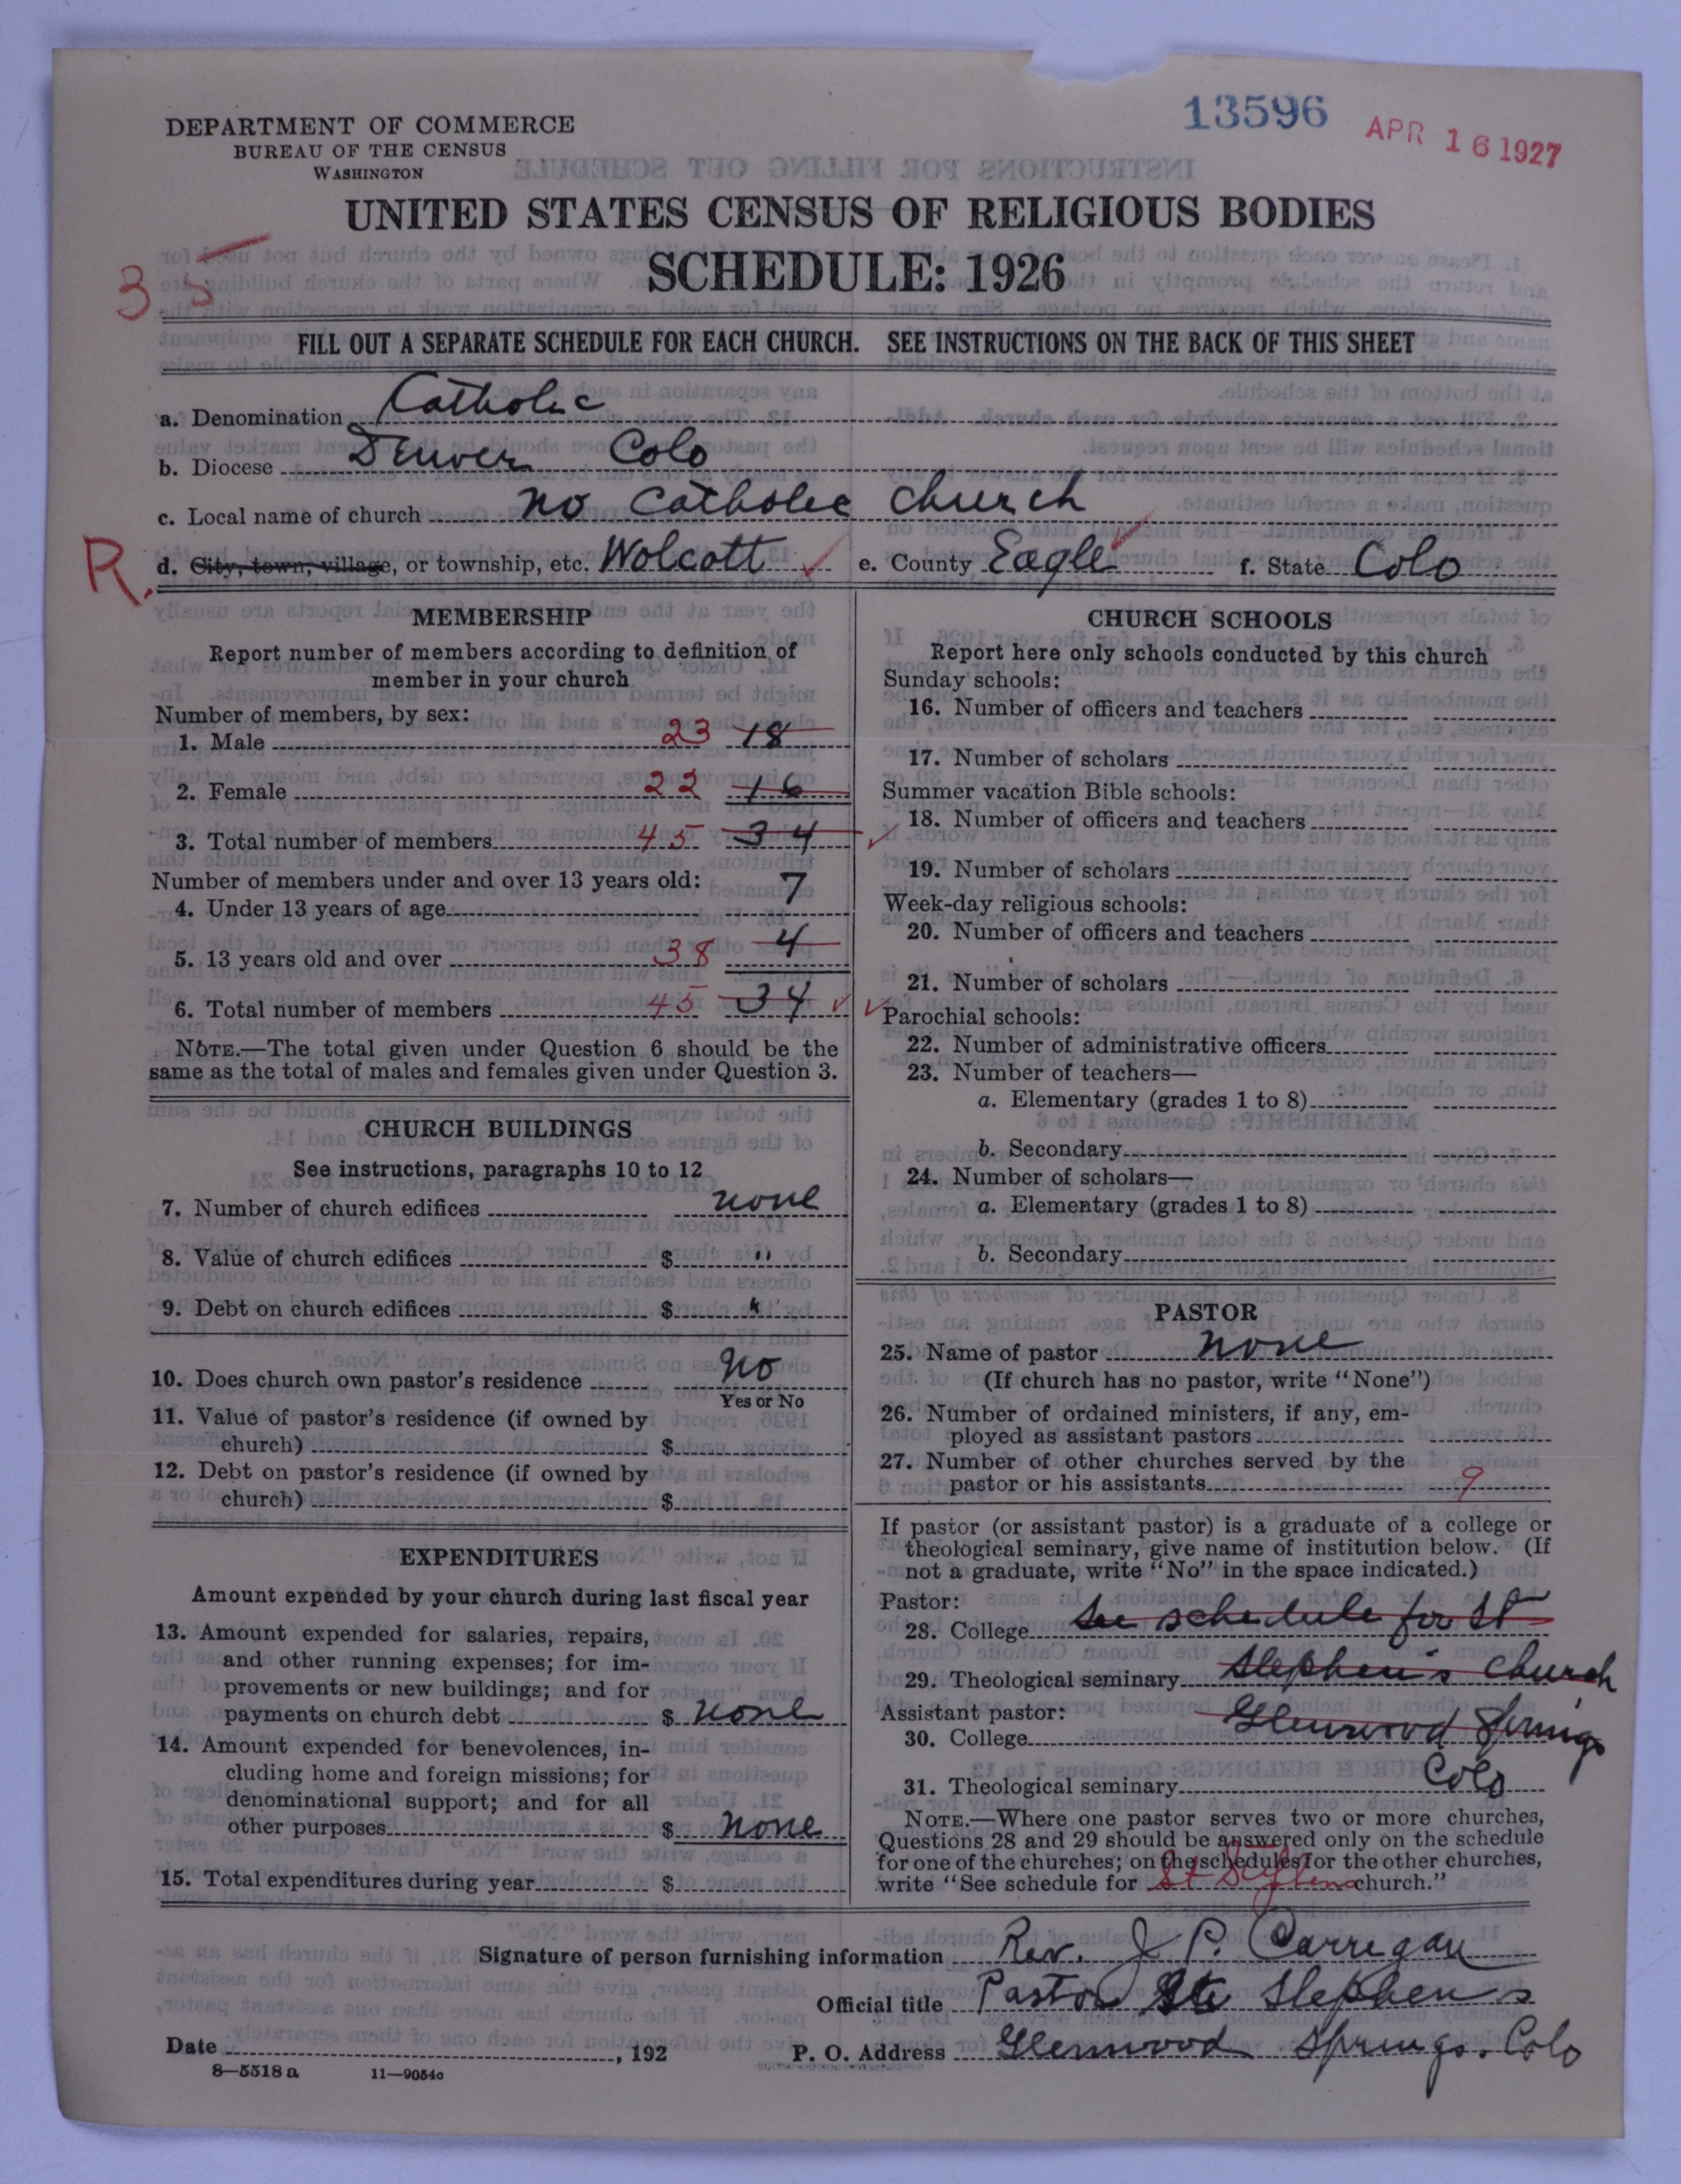 13596
APR 16 1927
DEPARTMENT OF COMMERCE
BUREAU OF THE CENSUS
WASHINGTON
UNITED STATES CENSUS OF RELIGIOUS BODIES
SCHEDULE: 1926
35
FILL OUT A SEPARATE SCHEDULE FOR EACH CHURCH. SEE INSTRUCTIONS ON THE BACK OF THIS SHEET
a. Denomination Catholic
b. Diocese Denver Colo
c. Local name of church no Catholic church
R. d. City, town, village, or township, etc. Wolcott e. County Eagle f. State Colo
MEMBERSHIP
Report number of members according to definition of
member in your church
Number of members, by sex:
1. Male 23 18
2. Female 22 16
3. Total number of members 45 34
Number of members under and over 13 years old:
4. Under 13 years of age 7
5. 13 years old and over 38 4
6. Total number of members 45 34
NOTE.—The total given under Question 6 should be the
same as the total of males and females given under Question 3.
CHURCH BUILDINGS
See instructions, paragraphs 10 to 12
7. Number of church edifices none
8. Value of church edifices $ "
9. Debt on church edifices $ "
10. Does church own pastor's residence No
Yes or No
11. Value of pastor's residence (if owned by
church) $
12. Debt on pastor's residence (if owned by
church) $
EXPENDITURES
Amount expended by your church during last fiscal year
13. Amount expended for salaries, repairs,
and other running expenses; for im-
provements or new buildings; and for
payments on church debt $ none
14. Amount expended for benevolences, in-
cluding home and foreign missions; for
denominational support; and for all
other purposes $ none
15. Total expenditures during year $
CHURCH SCHOOLS
Report here only schools conducted by this church
Sunday schools:
16. Number of officers and teachers
17. Number of scholars
Summer vacation Bible schools:
18. Number of officers and teachers
19. Number of scholars
Week-day religious schools:
20. Number of officers and teachers
21. Number of scholars
Parochial schools:
22. Number of administrative officers
23. Number of teachers—
a. Elementary (grades 1 to 8)
b. Secondary
24. Number of scholars—
a. Elementary (grades 1 to 8)
b. Secondary
PASTOR
25. Name of pastor none
(If church has no pastor, write "None")
26. Number of ordained ministers, if any, em-
ployed as assistant pastors
27. Number of other churches served by the
pastor or his assistants 9
If pastor (or assistant pastor) is a graduate of a college or
theological seminary, give name of institution below. (If
not a graduate, write "No" in the space indicated.)
Pastor:
28. College See schedule for St
29. Theological seminary Stephen's church
Assistant pastor:
30. College Glenwood Springs
31. Theological seminary Colo
NOTE.—Where one pastor serves two or more churches,
Questions 28 and 29 should be answered only on the schedule
for one of the churches; on the schedules for the other churches,
write "See schedule for St Stephens church."
Signature of person furnishing information Rev. J P. Carrigan
Official title Pastor St Stephens
Date , 192
P. O. Address Glenwood Springs. Colo
8—5518 a 11—9054c